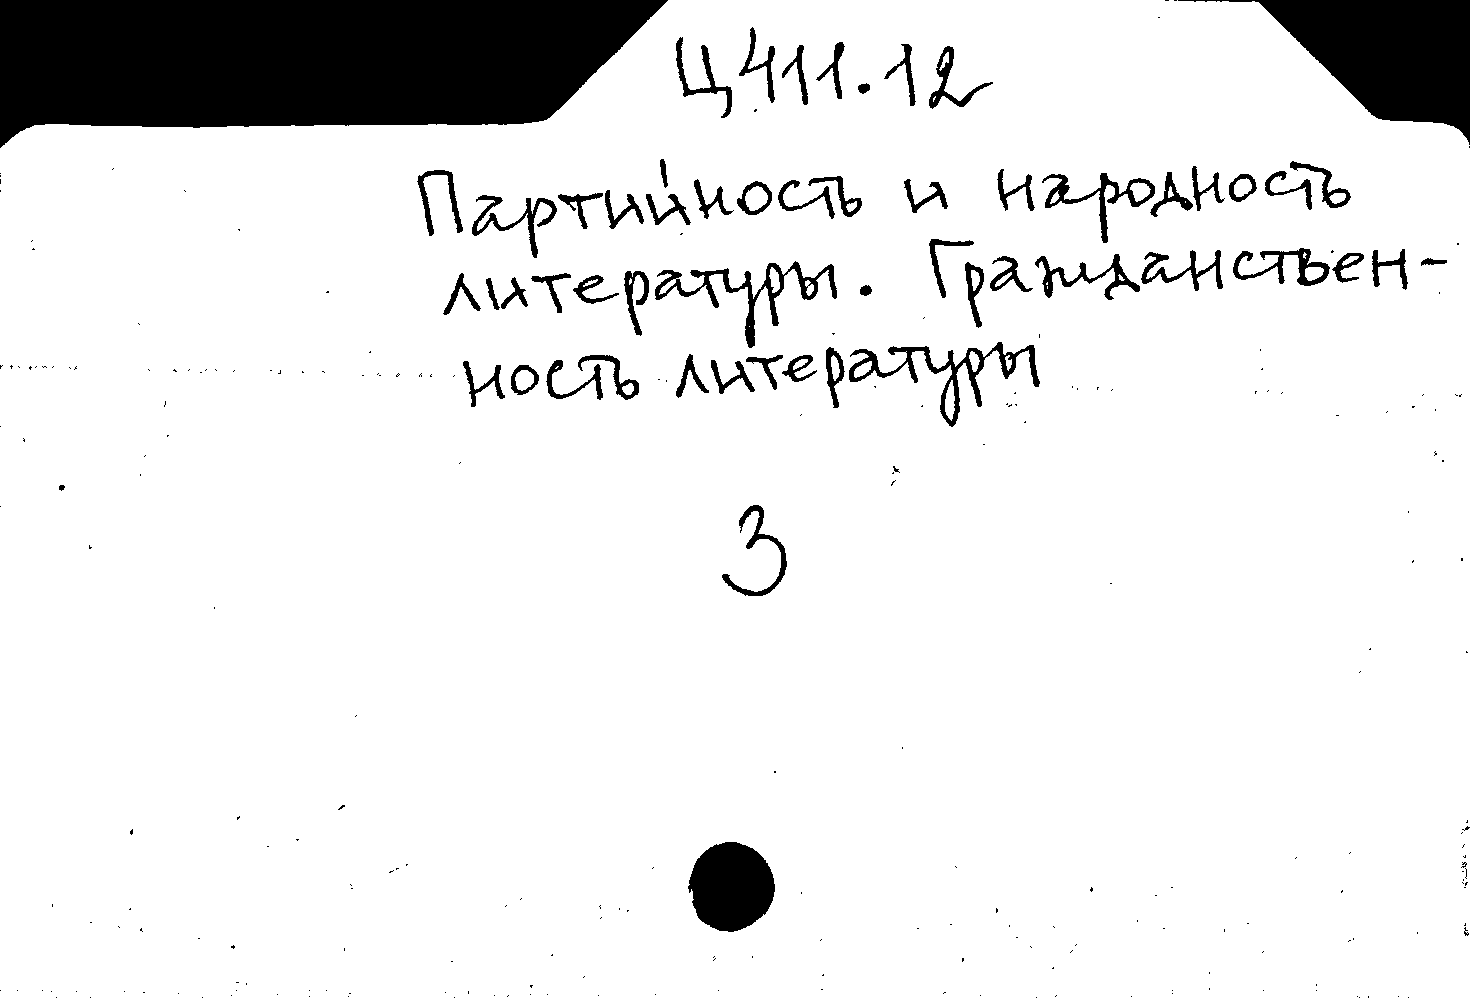 Ц411.12
Партийность и народность
литературы. Гражданствен-
ность литературы
3